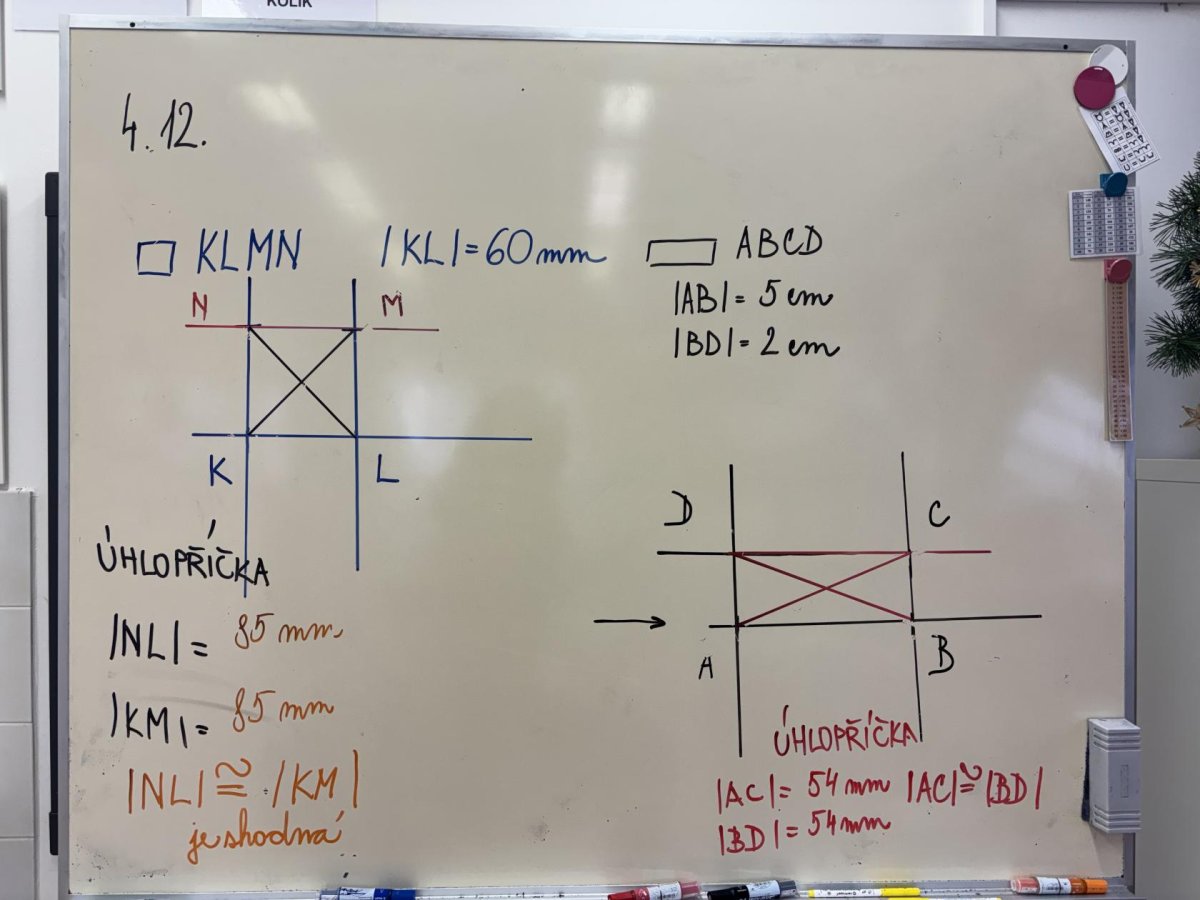 KOLÍK
4.12.
KLMN |KL| = 60 mm
N M
K L
ÚHLOPŘÍČKA
|NL| = 85 mm
|KM| = 85 mm
|NL| ≅ |KM|
je shodná
ABCD
|AB| = 5 cm
|BD| = 2 cm
D C
A B
ÚHLOPŘÍČKA
|AC| = 54 mm |AC| ≅ |BD|
|BD| = 54 mm